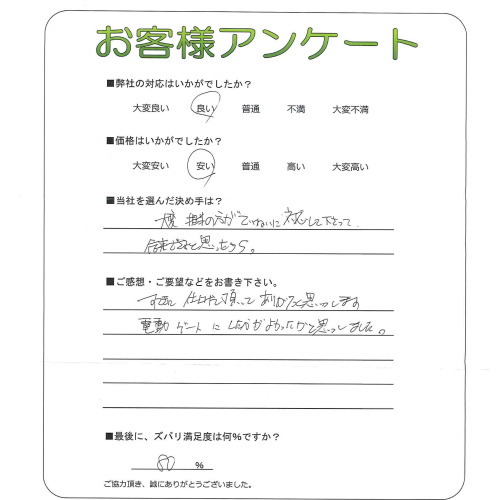 お客様アンケート
■弊社の対応はいかがでしたか？
大変良い 良い 普通 不満 大変不満
■価格はいかがでしたか？
大変安い 安い 普通 高い 大変高い
■当社を選んだ決め手は？
の方がていねいに対応して下さって
と思ったから。
■ご感想・ご要望などをお書き下さい。
仕上げて頂いてありがたく思っています
電動ゲートにしたほうがよかったかと思っしました。
■最後に、ズバリ満足度は何%ですか？
80 %
ご協力頂き、誠にありがとうございました。